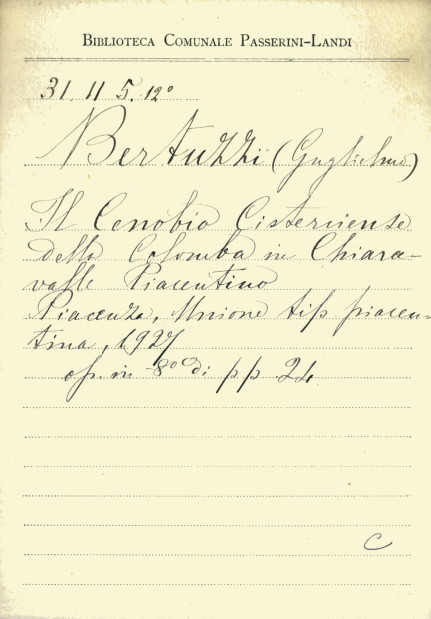 BIBLIOTECA COMUNALE PASSERINI-LANDI
31. 11 5. 12º
Bertuzzi (Guglielmo)
Il Cenobio Cisterciense
della Colomba in Chiara-
valle Piacentino
Piacenza, Unione tip. piacen-
tina, 1927
op. in -8º di pp. 24
C